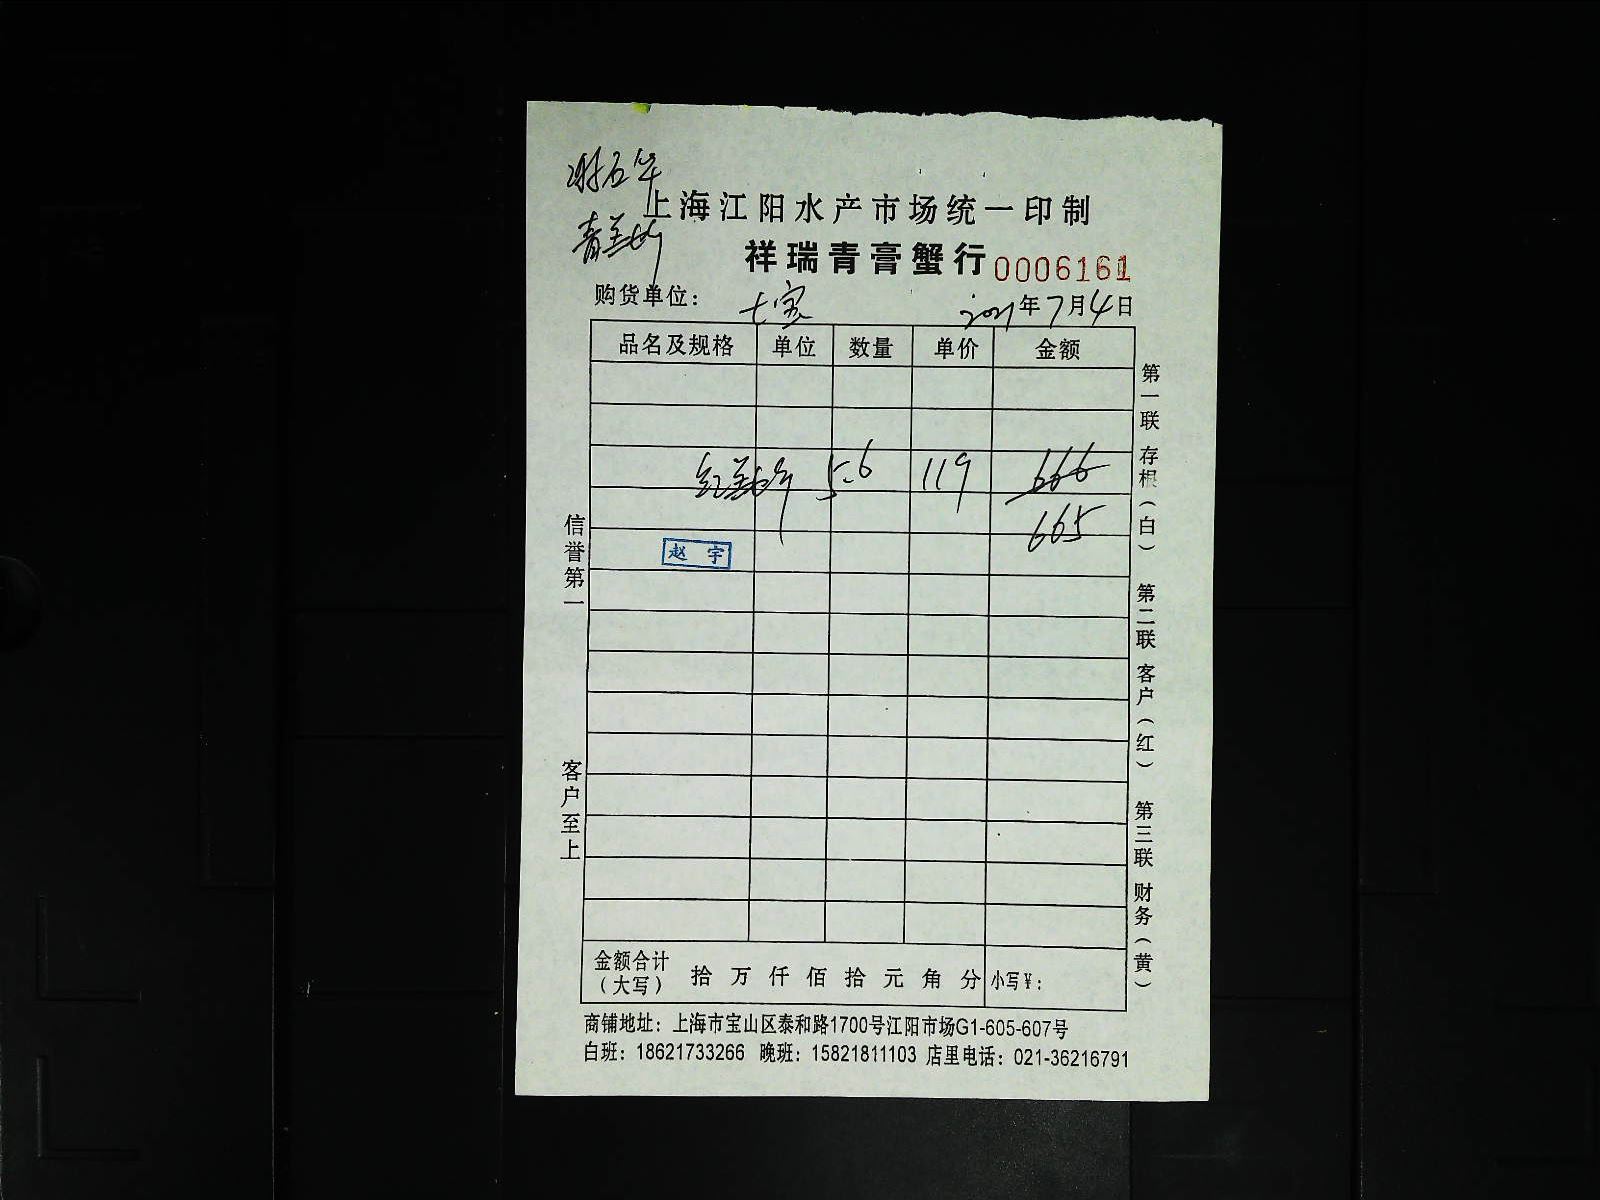 上海江阳水产市场统一印制
祥瑞青膏蟹行 0006161
购货单位： 七宝 2021年7月4日
品名及规格 单位 数量 单价 金额
5.6 119 666
665
赵宇
信誉第一
客户至上
第一联 存根（白） 第二联 客户（红） 第三联 财务（黄）
金额合计（大写） 拾 万 仟 佰 拾 元 角 分 小写￥：
商铺地址：上海市宝山区泰和路1700号江阳市场G1-605-607号
白班：18621733266 晚班：15821811103 店里电话：021-36216791